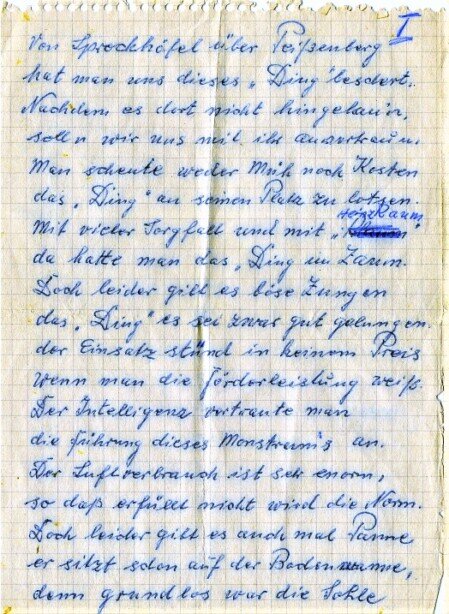 I
Von Sprockhöfel über Peißenberg
hat man uns dieses „Ding" beschert.
Nachdem es dort nicht hingehau'n,
soll'n wir uns mit ihr anvertrau'n.
Man scheute weder Müh noch Kosten
das „Ding" an seinen Platz zu lotsen.
Holzkaum
Mit vieler Sorgfalt und mit „
da hatte man das „Ding im Zaum.
Doch leider gibt es böse Zungen
das „Ding" es sei zwar gut gelungen.
der Einsatz stünd in keinem Preis
wenn man die Förderleistung weiß.
Der Intelligenz vertraute man
die Führung dieses Monstrum's an.
Der Luftverbrauch ist sehr enorm,
so daß erfüllt nicht wird die Norm.
Doch leider gibt es auch mal Panne
er sitzt schon auf der Badewanne,
denn grundlos war die Sohle